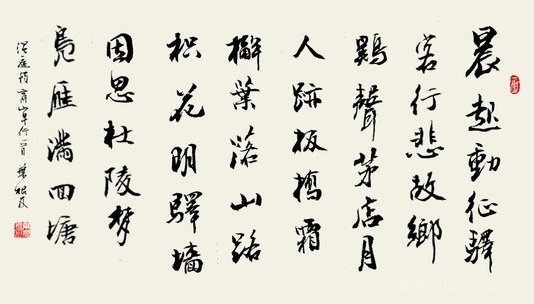 晨起動征驛
客行悲故鄉
鷄聲茅店月
人跡板橋霜
槲葉落山路
枳花明驛墻
因思杜陵梦
鳧雁滿回塘
温庭筠商山早行一首